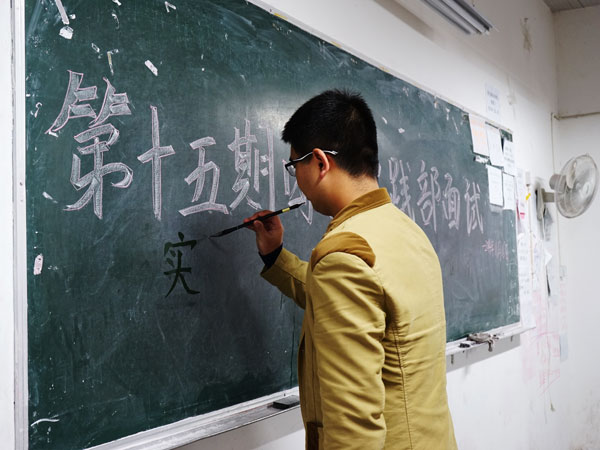 第十五期 践部面试
实